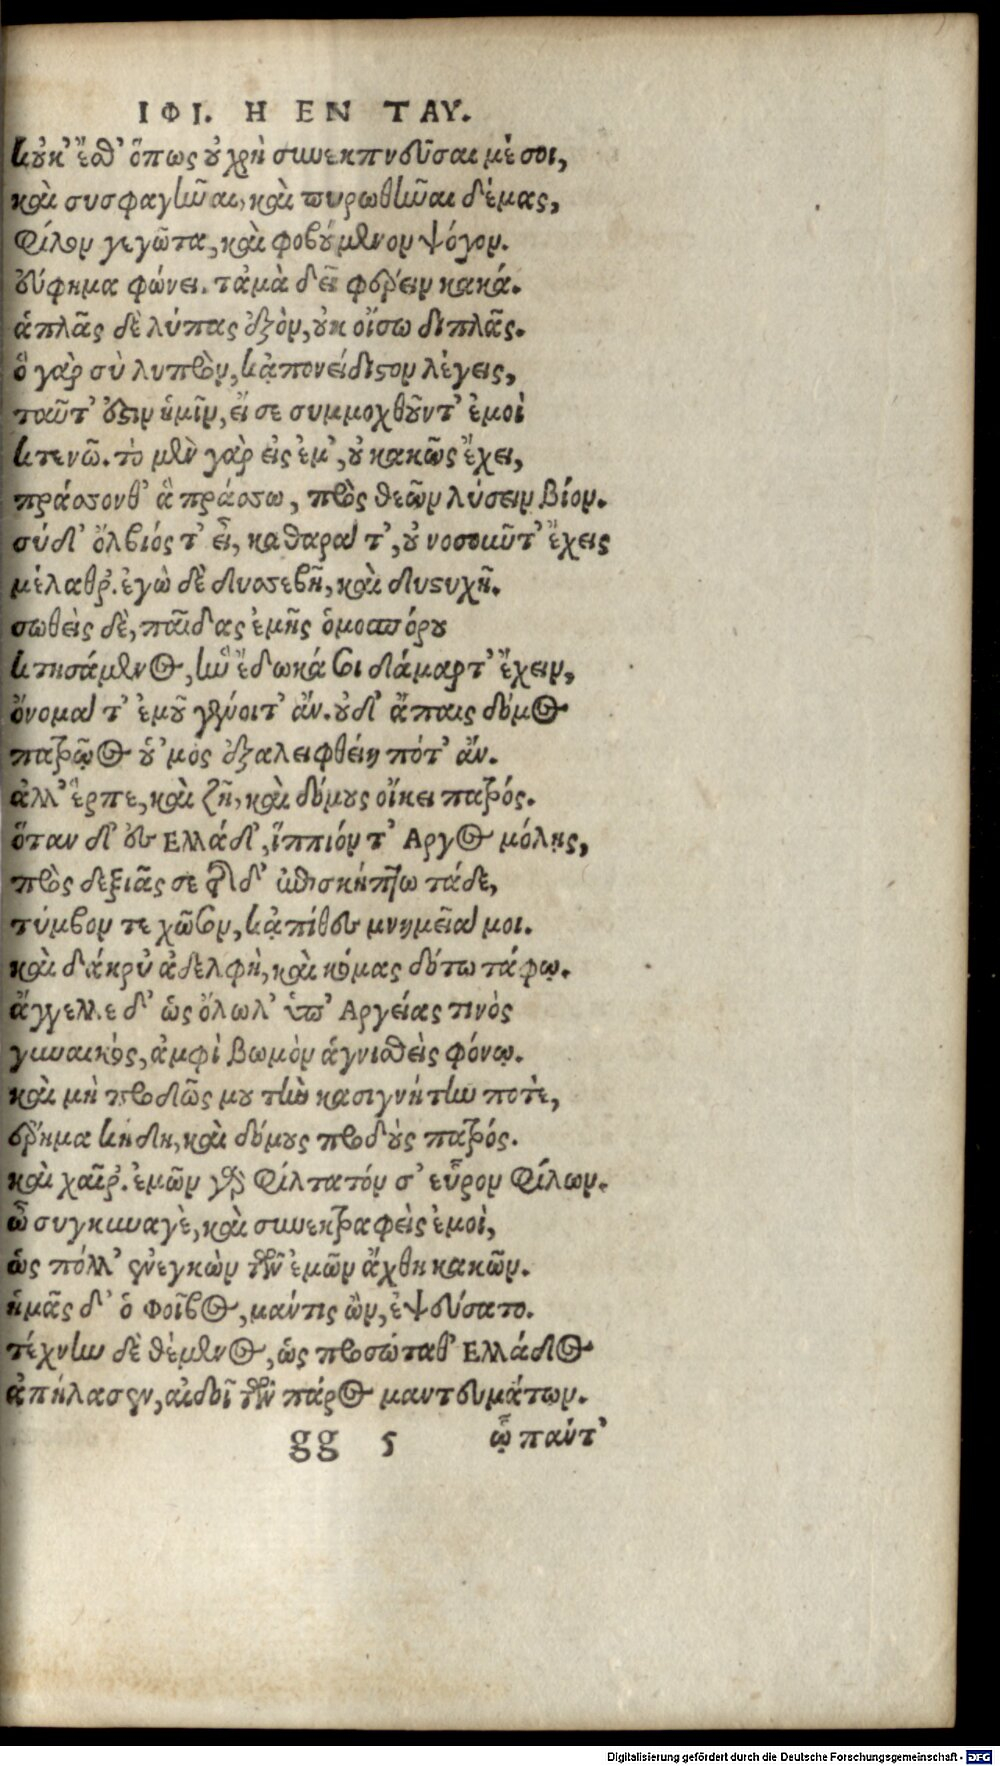 ΙΦΙ. Η ΕΝ ΤΑΥ.
κοὐκ ἔσθ' ὅπως οὐ χρὴ συνεκπνεῦσαι μέ σοι,
καὶ συσφαγῆναι, καὶ πυρωθῆναι δέμας,
φίλον γεγῶτα, καὶ φοβούμενον ψόγον.
εὔφημα φώνει. τἀμὰ δεῖ φέρειν κακά.
ἁπλᾶς δὲ λύπας ἐξὸν, οὐκ οἴσω διπλᾶς.
ὃ γὰρ σὺ λυπρὸν, κἀπονείδιστον λέγεις,
ταῦτ' ἔστιν ἡμῖν, εἴ σε συμμοχθοῦντ' ἐμοὶ
κτενῶ. τὸ μὲν γὰρ εἰς ἔμ', οὐ κακῶς ἔχει,
πράσσονθ' ἃ πράσσω, πρὸς θεῶν λύσειν βίον.
σὺ δ' ὄλβιός τ' εἶ, καθαρά τ', οὐ νοσοῦντ' ἔχεις
μέλαθρ'. ἐγὼ δὲ δυσσεβῆ, καὶ δυστυχῆ.
σωθεὶς δὲ, παῖδας ἐμῆς ὁμοσπόρου
κτησάμενος, ἣν ἔδωκά σοι δάμαρτ' ἔχειν,
ὄνομά τ' ἐμοῦ γένοιτ' ἄν. οὐδ' ἄπαις δόμος
πατρῷος οὑ'μὸς ἐξαλειφθείη πότ' ἄν.
ἀλλ' ἕρπε, καὶ ζῆ, καὶ δόμους οἴκει πατρός.
ὅταν δ' ἐς Ἑλλάδ', ἵππιόν τ' Αργος μόλῃς,
πρὸς δεξιᾶς σε τῆσδ' ἐπισκήπτω τάδε,
τύμβον τε χῶσον, κἀπίθες μνημεῖά μοι.
καὶ δάκρυ' ἀδελφὴ, καὶ κόμας δότω τάφῳ.
ἄγγελλε δ' ὡς ὄλωλ' ὑπ' Αργείας τινὸς
γυναικὸς, ἀμφὶ βωμὸν ἁγνισθεὶς φόνῳ.
καὶ μὴ προδῶς μου τὴν κασιγνήτην ποτὲ,
ἔρημα κήδη, καὶ δόμους προδοὺς πατρός.
καὶ χαῖρ'. ἐμῶν γὰρ φίλτατόν σ' εὗρον φίλων.
ὦ συγκυναγὲ, καὶ συνεκτραφεὶς ἐμοὶ,
ὡς πόλλ' ἐνεγκὼν τῶν ἐμῶν ἄχθη κακῶν.
ἡμᾶς δ' ὁ Φοῖβος, μάντις ὢν, ἐψεύσατο.
τέχνην δὲ θέμενος, ὡς προσώταθ' Ἑλλάδος
ἀπήλασεν, αἰδοῖ τῶν πάρος μαντευμάτων.
gg 5 ᾧ πάντ'
Digitalisierung gefördert durch die Deutsche Forschungsgemeinschaft - DFG